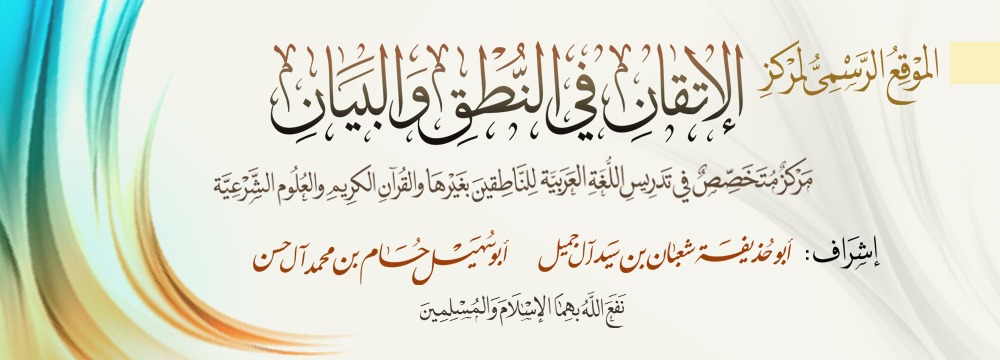 الموقعُ الرَّسْمِيُّ لمَرْكَزِ
الإتقانِ في النُّطْقِ وَالبَيَانِ
مَرْكَزٌ مُتَخَصِّصٌ في تَدرِيسِ اللُّغَةِ العَرَبيَّة لِلنَّاطِقينَ بغَيْرِهَا والقُرآنِ الكَرِيمِ والعُلُوم الشَّرْعِيَّة
إشْرَاف: أبو حُذيفَة شعبان بن سَيّد آل جميل أبو سُهَيْل حُسَام بن محمد آل حسن
نَفَعَ اللَّهُ بهِمَا الإسْلَامَ وَالمُسْلِمِينَ